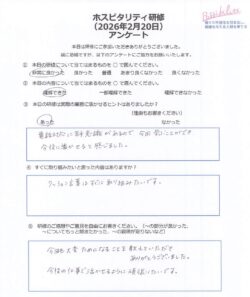 ホスピタリティ研修
(2026年2月20日)
アンケート
本日は研修にご参加いただきありがとうございました。
① 本日の研修について当てはまるものを○で囲んでください。
非常に良かった 良かった 普通 あまり良くなかった 良くなかった
② 本日の内容について当てはまるものを○で囲んでください。
理解できた 一部理解できた 理解できなかった
③ 本日の研修は実際の業務に活かせるヒントはありましたか?
(理由もお書きください)
あった なかった
電話対応に苦手意識があるので 今回 学ぶことができ
今後に活かせると感じました。
④ すぐに取り組みたいと思った内容はありますか?
クッション言葉はすぐに取り組みたいです。
⑤ 研修のご感想やご意見を自由にお書きください。(~の部分が良かった、
~についてもっと聞きたかった、~の説明が足りないなど)
今回も大変ためになることを教えていただき
ありがとうございました。
今後の仕事で活かせるように頑張りたいです。